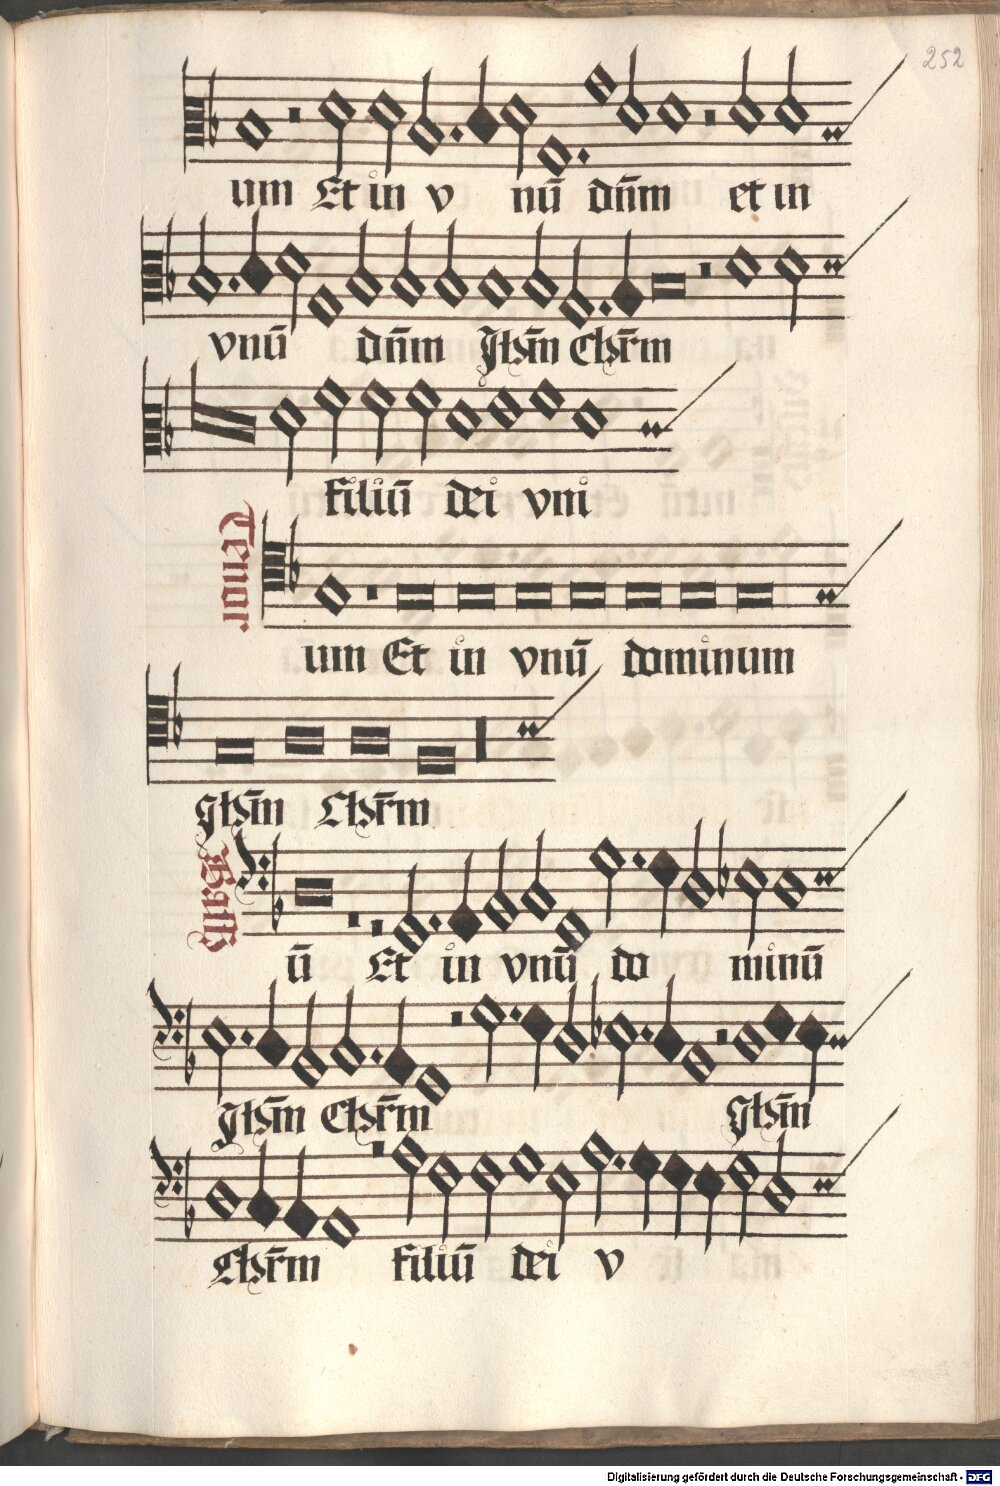 252
um Et in v nū dn̄m et in
vnū dn̄m Jhm̄ Chr̄m
filiū dei vni
Tenor
um Et in vnū dominum
Jhm̄ Chr̄m
Bassus
ū Et in vnū do minū
Jhm̄ Chr̄m Jhm̄
Chr̄m filiū dei v
Digitalisierung gefördert durch die Deutsche Forschungsgemeinschaft - DFG